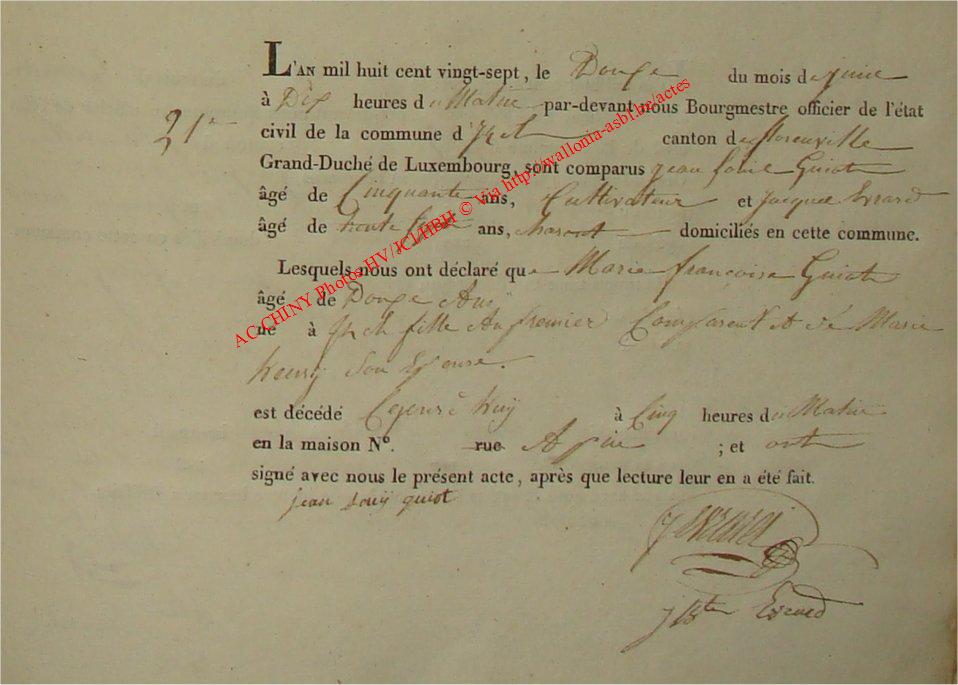 L'AN mil huit cent vingt-sept, le Douze du mois de juin
21e
à Dix heures du Matin par-devant nous Bourgmestre officier de l'état
civil de la commune d' canton de florenville
Grand-Duché de Luxembourg, sont comparus jean louie Guiot
âgé de Cinquante ans, Cultivateur et jacque Evrard
âgé de trente ans, domiciliés en cette commune.
Lesquels nous ont déclaré que Marie françoise Guiot
âgé de Douze Ans
né à fille du premier Comparent & de Marie
henry Son Epouse.
est décédé Cejourd huÿ à Cinq heures du Matin
en la maison N°. rue ; et ont
signé avec nous le présent acte, après que lecture leur en a été fait.
jean louij guiot
Evrard
AC CHINY Photos HV/JCL/HBH © Via http://wallonia-asbl.be/actes